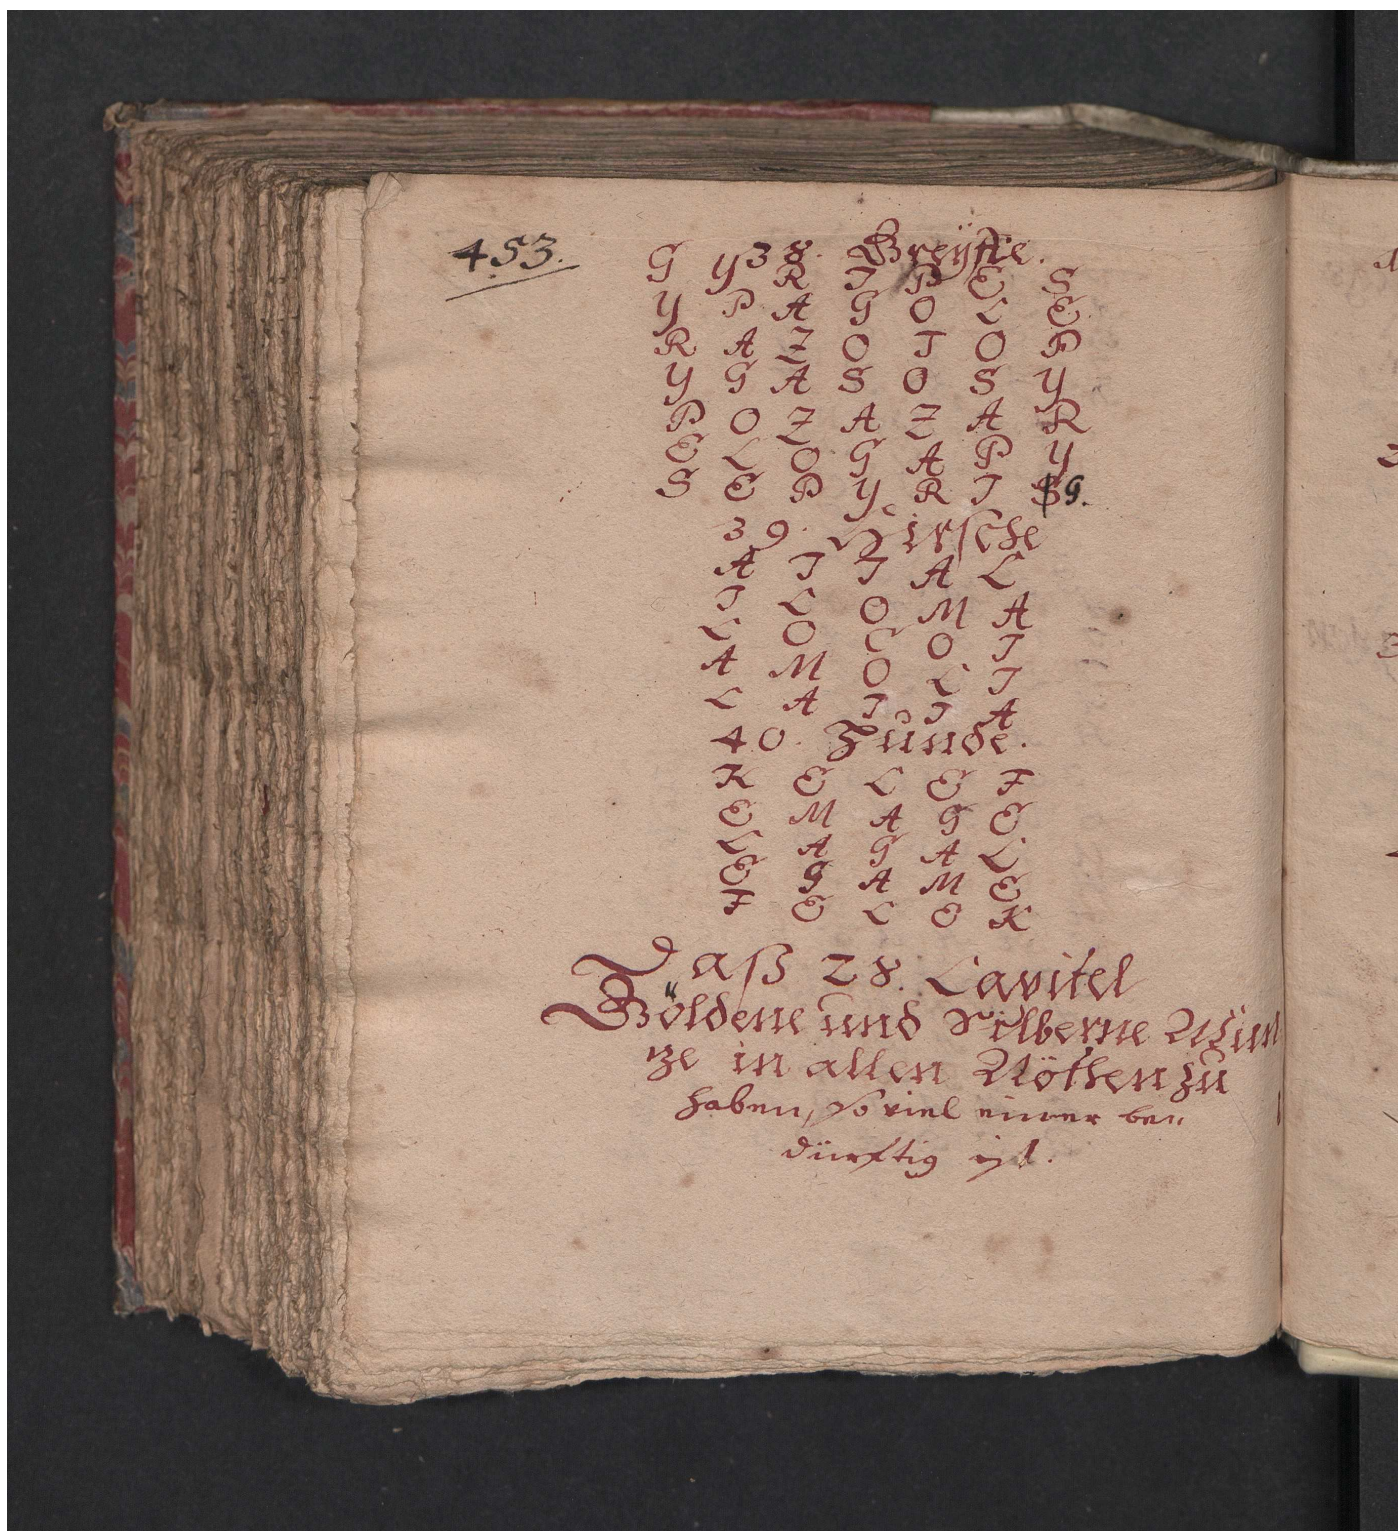 453.
38. Greyffe.
G Y R I P E S
Y P A G O L E
R A Z O T O P
Y G A S O S Y
P O Z A Z A R
E L O G A P Y
S E P Y R I G.
39. Hirsche
A I I A L
I L O M A
L O C O I
A M O L I
L A I I A
40. Hunde.
K E L E F
E M A G E
L A G A L
E G A M E
F E L E K
Daß 28. Capitel
Göldene und Silberne Mün
tze in allen Nöthen zu
haben, so viel einer be„
dürftig ist.